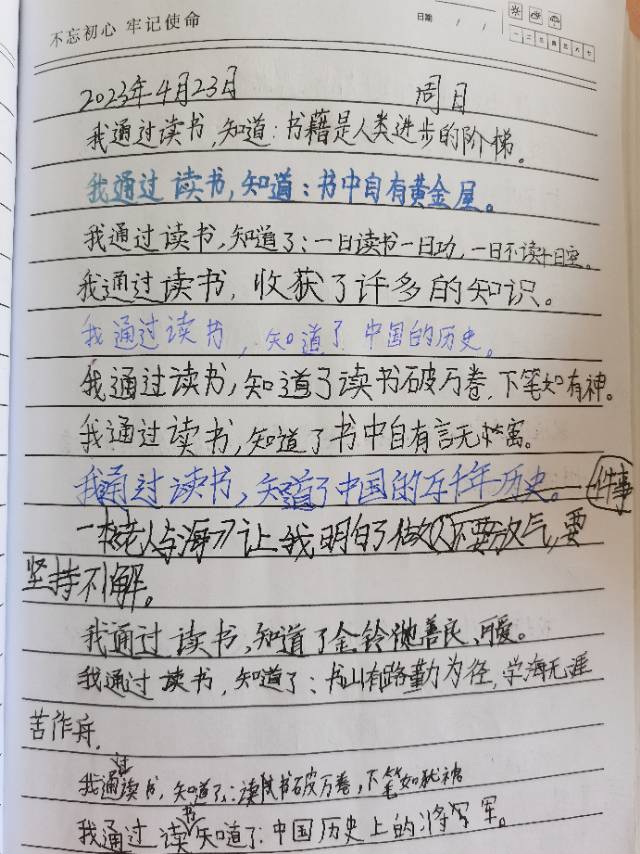 不忘初心 牢记使命
日期 / /
一 二 三 四 五 六 七
2023年4月23日 周日
我通过读书,知道:书籍是人类进步的阶梯。
我通过读书,知道:书中自有黄金屋。
我通过读书,知道了:一日读书一日功,一日不读十日空。
我通过读书,收获了许多的知识。
我通过读书,知道了中国的历史。
我通过读书,知道了读书破万卷,下笔如有神。
我通过读书,知道了书中自有言无
我通过读书,知道了中国的五千年历史。
一件事
一本老人与海》让我明白了做人不要放气,要
坚持不解。
我通过读书,知道了金铃她善良、可爱。
我通过读书,知道了:书山有路勤为径,学海无涯
苦作舟.
我通过读书,知道了:读书破万卷,下笔如
我通过读书知道了:中国历史上的将军。